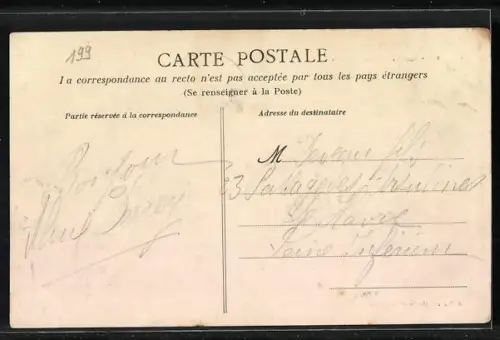 199
CARTE POSTALE
La correspondance au recto n'est pas acceptée par tous les pays étrangers
(Se renseigner à la Poste)
Partie réservée à la correspondance
Adresse du destinataire
Bonjour
M
23
Le Havre
Seine Inférieure